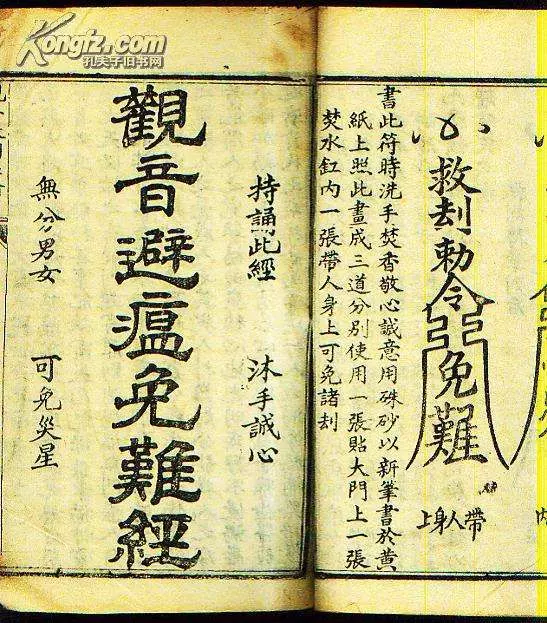 Kongfz.com
孔夫子旧书网
救刦勅令
免難
帶人身上
書此符時洗手焚香敬心誠意用硃砂以新筆書於黄
紙上照此畫成三道分别使用一張貼大門上一張
焚水缸内一張帶人身上可免諸刦
持誦此經 沐手誠心
觀音避瘟免難經
無分男女 可免災星